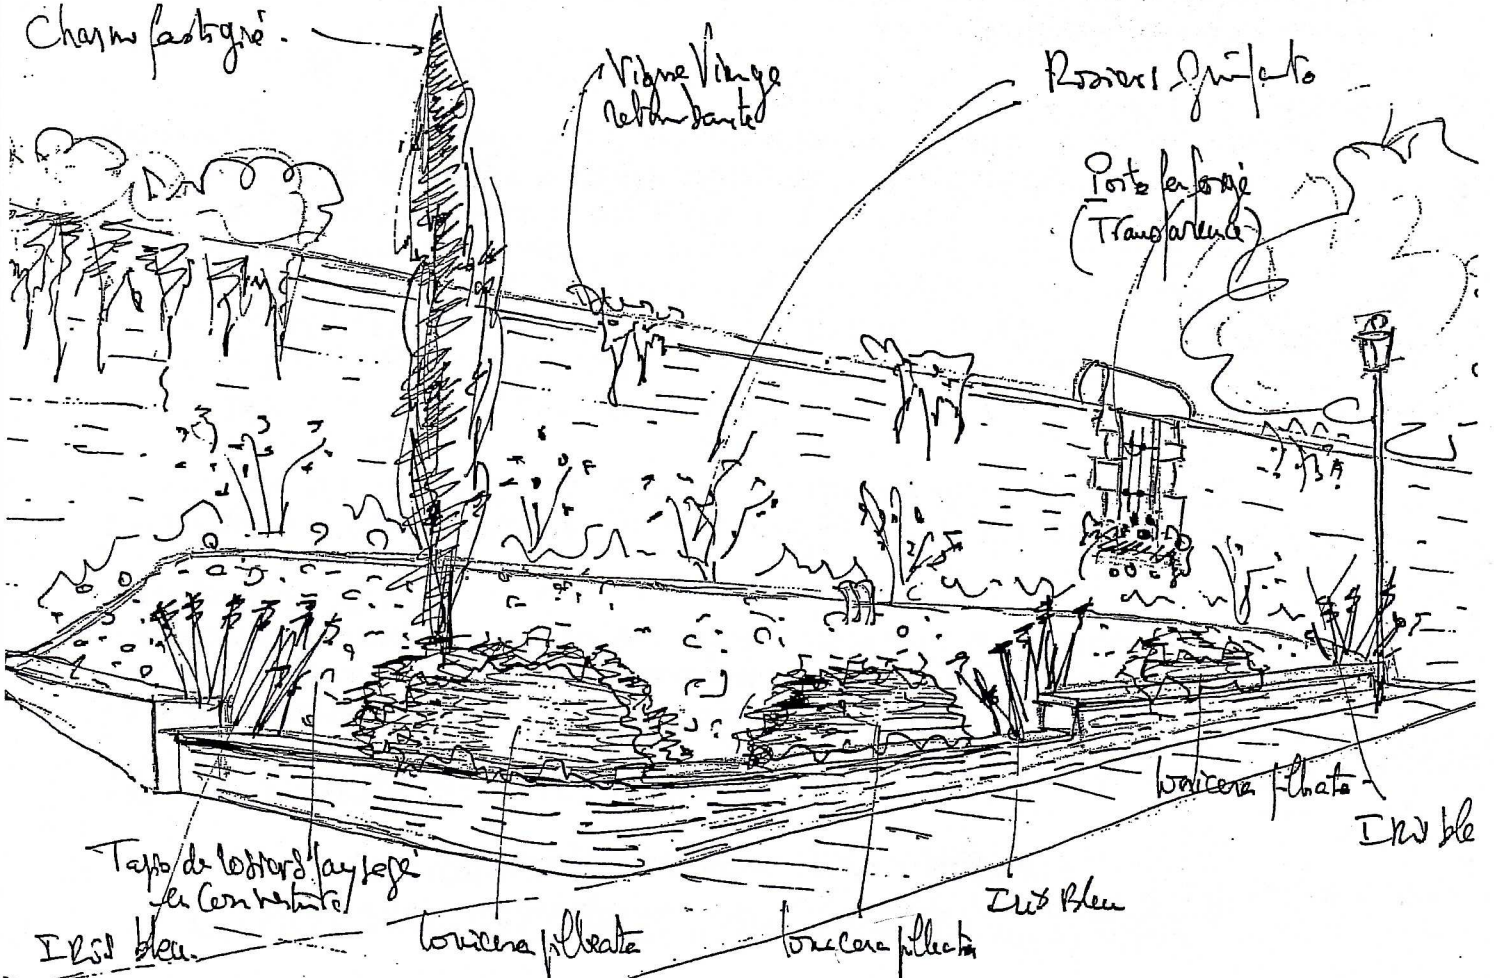 Charme fastigié.
Vigne Vierge
retombante
Rosiers Grimpants
Porte fer forgé
(Transparence)
Lonicera pileata
Iris ble
Tapis de rosiers paysagé
en Couverture
Iris Bleu
Iris bleu.
Lonicera pileata
Lonicera pileata